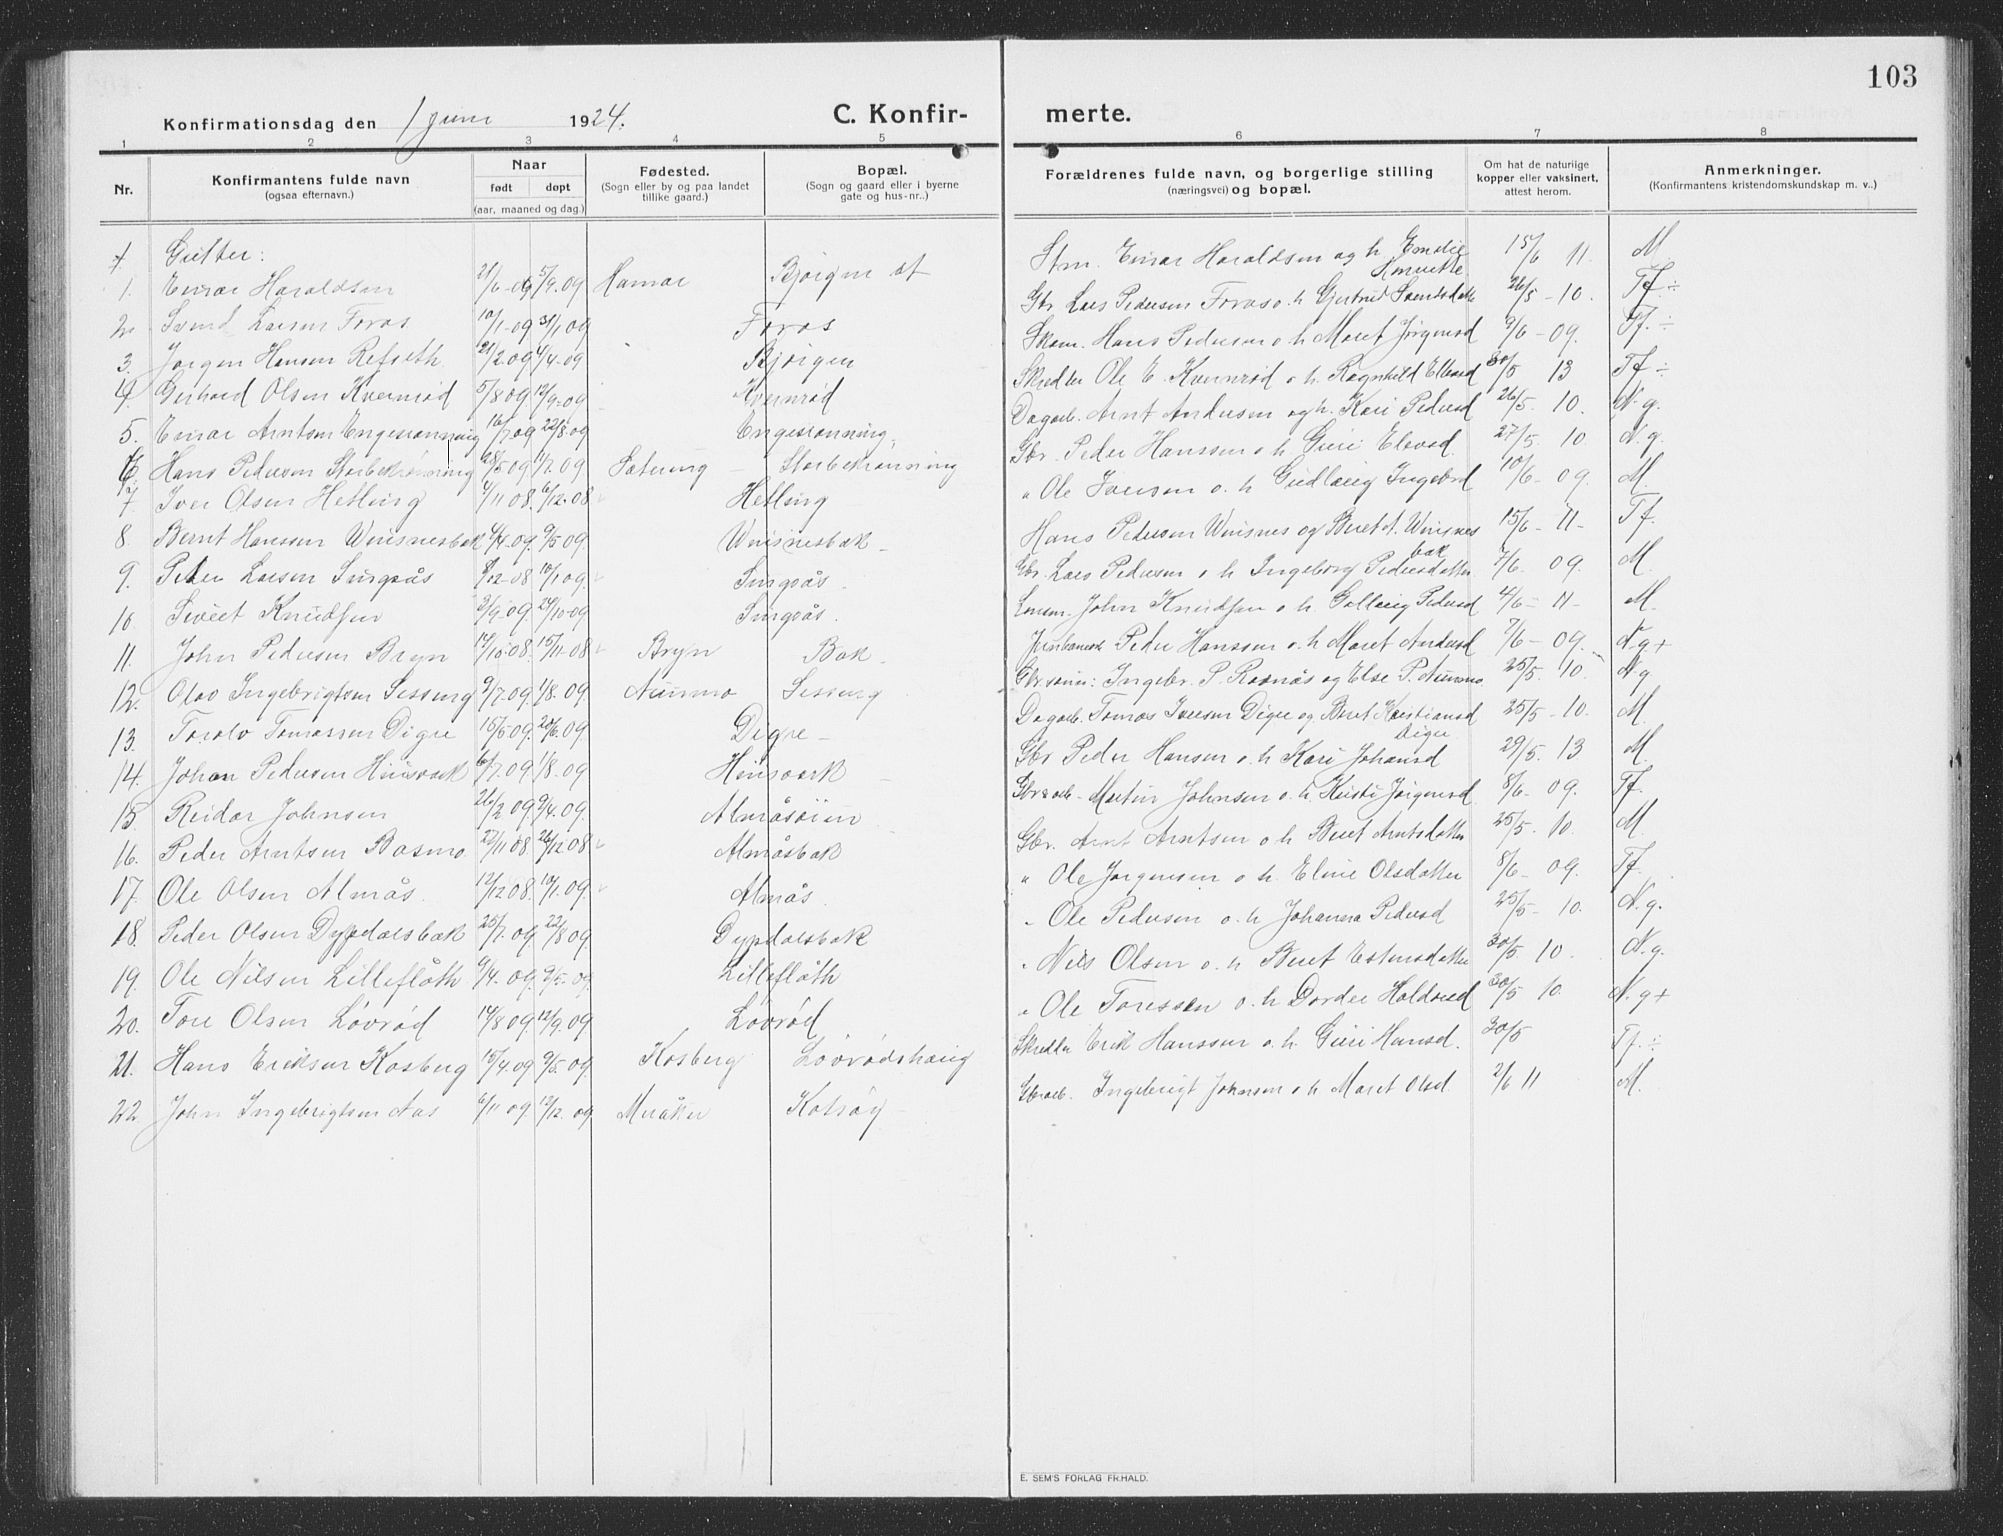 103
Konfirmationsdag den 1 juni 1924. C. Konfir- merte.
1 2 3 4 5 6 7 8
Nr. Konfirmantens fulde navn (ogsaa efternavn.) Naar født døpt (aar, maaned og dag.) Fødested. (Sogn eller by og paa landet tillike gaard.) Bopæl. (Sogn og gaard eller i byerne gate og hus-nr..) Forældrenes fulde navn, og borgerlige stilling (næringsvei) og bopæl. Om hat de naturlige kopper eller vaksinert, attest herom. Anmerkninger. (Konfirmantens kristendomskundskap m. v..)
Gutter:
1. Einar Haraldsen 21/6-09 5/9.09 Hamar Bjørgen Stm. Einar Haraldsen og h. 15/6 11. M
2. Larsen Foros 10/1-09 31/1 09 Foros Gbr. Lars Pedersen Foros o. h Gjertrud 26/5-10. Tf ÷
3. Jørgen Hansen Refseth 21/2 09 4/4-09 Bjørgen Hans Pedersen o h Maret Jørgensd 9/6-09. Tf. ÷
4. Gerhard Olsen Kvernrød 5/8 09 12/9-09 Kvernrød Skredder Ole E. Kvernrød o. h. Ragnhild 30/5 13 Tf ÷
5. Einar Arntsen Engesrønning 16/7 09 22/8 09 Engesrønning Dagarb. Arnt Andersen og h. Kari Pedersd 26/5. 10. N. g.
6. Hans Pedersen Storbekrønning 28/5 09 11/7. 09 Storbekrønning Gbr. Peder Hanssen o h Guri 27/5. 10 N. g.
7. Iver Olsen Hetling 4/11 08. 6/12-08 Hetling " Ole Iversen o. h Gudlaug Ingebrd 10/6-09. M
8. Bernt Hanssen Winsnesbak 4/4-09. 9/5 09. Winsnesbak Hans Pedersen Winsnes og Beret Winsnes bak 15/6-11- Tf.
9. Peder Larsen Singsås 8/12-08 10/1 09. Singsås Gbr. Lars Pedersen o h Ingeborg Pedersdatter 7/6. 09. M.
10 Sivert Knudsen 3/9 09. 24/10-09 Singsås. John Knudsen o. h. Gollaug Pedersd 4/6-11- M.
11. John Pedersen Bryn 14/10-08. 15/11-08 Bryn Bak Peder Hansson o. h Maret Andersd 7/6-09. N. g +
12. Olav Ingebrigtsen Sessing 9/7.09. 1/8. 09. Aunmo Sessing Ingebr. P. Rosnås og Else P. Aunmo 25/5. 10. N g
13. Torolv Tomassen Digre 15/5 09. 20/6.09. Digre Dagarb. Tomas Iversen Digre og Beret Kristiansd Digre 25/5-10. M.
14. Johan Pedersen Hinsverk 6/7. 09 1/8-09 Hinsverk Gbr Peder Hansen o. h Kari Johansd 29/5. 13 M.
15 Reidar Johnsen 26/2 09. 9/4.09. Almåsøien Martin Johnsen o. h. Kristi Jørgensd 8/6-09. Tf.
16. Peder Arntsen Bosmo 22/11 08. 26/12 08 Almåsbak Gbr. Arnt Arntsen o h Beret Arntsdatter 25/5. 10. M.
17. Ole Olsen Almås 12/12 08. 10/1. 09. Almås. " Ole Jørgensen o h. Eline Olsdatter 8/6-09. Tf.
18. Peder Olsen Dypdalsbak 25/7. 09. 22/8 09. Dypdalsbak " Ole Pedersen o. h Johanna Pedersd 25/5-10. N. g.
19. Ole Nilsen Lillefløth 9/4. 09. 9/5-09 Lillefløth " Nils Olsen o. h Beret Estensdatter 30/5 10. N. g.
20. Tore Olsen Løvrød 14/8 09. 12/9. 09 Løvrød " Ole Toressen o. h Dordei Haldosd 30/5 10. N. g +
21. Hans Eriksen Kosberg 15/4. 09 9/5. 09. Kosberg Løvrødshaug Skredder Erik Hanssen o. h. Guri Hansd. 30/5 Tf. ÷
22. John Ingebrigtsen Aas 6/11 09. 12/12. 09 Meråker Kotsøy Ingebrigt Johnsen o h Maret Olsd 2/6 11 M.
E. SEM'S FORLAG FR.HALD.